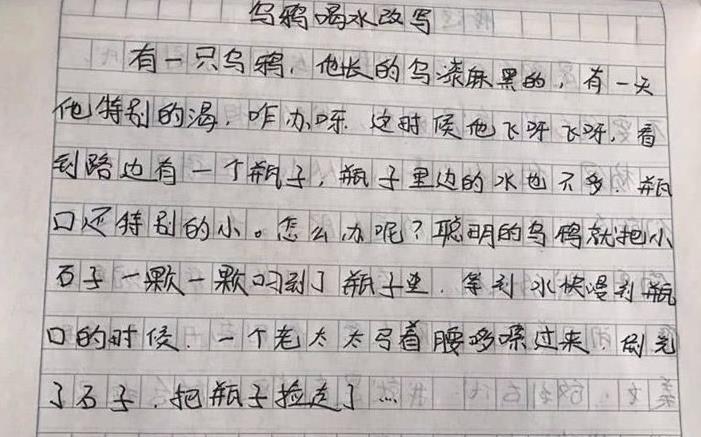 乌鸦喝水改写
有一只乌鸦，他长的乌漆麻黑的，有一天
他特别的渴，咋办呀 这时候他飞呀飞呀，看
到路边有一个瓶子，瓶子里边的水也不多，瓶
口还特别的小。怎么办呢？聪明的乌鸦就把小
石子一颗一颗叼到了瓶子里，等到水快漫到瓶
口的时候，一个老太太弓着腰哆嗦过来，倒光
了石子，把瓶子捡走了…